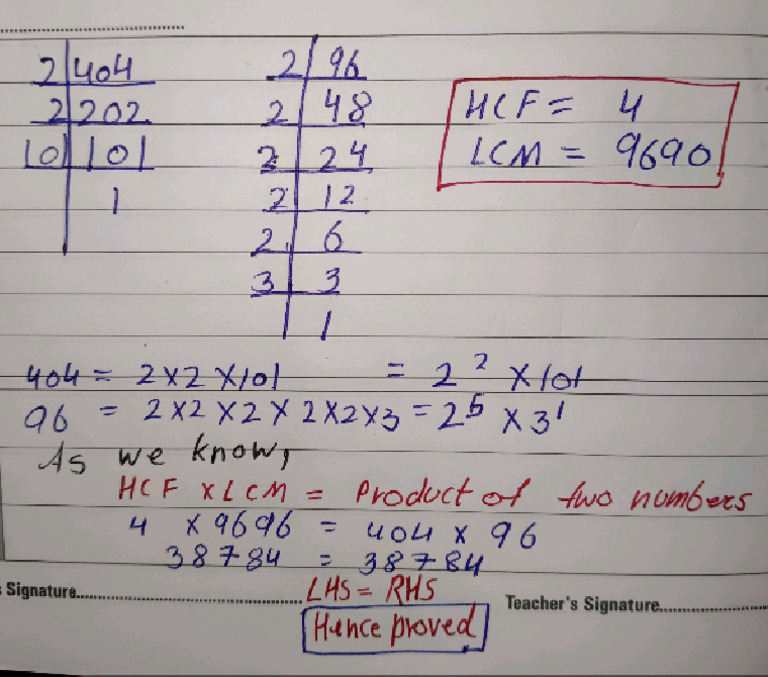 2 | 404
2 | 202
101 | 101
1
2 | 96
2 | 48
2 | 24
2 | 12
2 | 6
3 | 3
1
HCF = 4
LCM = 9690
404 = 2×2×101 = 2² × 101
96 = 2×2×2×2×2×3 = 2⁵ × 3¹
As we know,
HCF × LCM = Product of two numbers
4 × 9696 = 404 × 96
38784 = 38784
LHS = RHS
Signature
Teacher's Signature
Hence proved